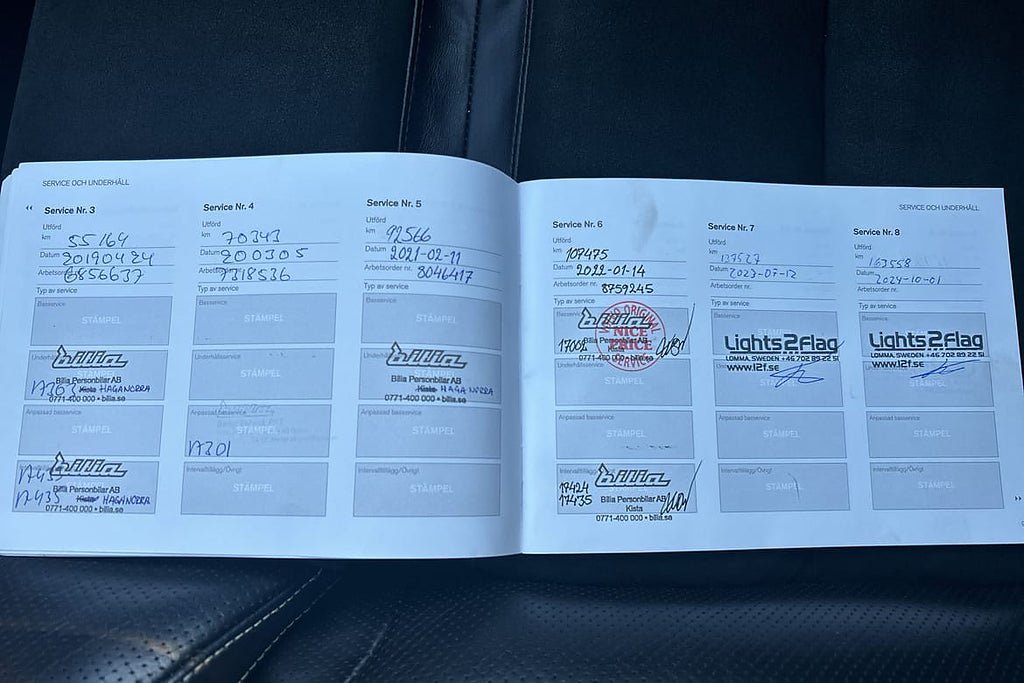 SERVICE OCH UNDERHÅLL
Service Nr. 3
Utförd
km 55164
Datum 20190424
Arbetsorder nr. 6856637
Typ av service
Basservice
STÄMPEL
Underhållsservice
bilia
Bilia Personbilar AB
Kista HAGANORRA
0771-400 000 • bilia.se
Anpassad basservice
STÄMPEL
bilia
17435
Bilia Personbilar AB
Kista HAGANORRA
0771-400 000 • bilia.se
Service Nr. 4
Utförd
km 70343
Datum 200305
Arbetsorder nr. 7318536
Typ av service
Basservice
STÄMPEL
Underhållsservice
STÄMPEL
Anpassad basservice
STÄMPEL
17201
Intervalltillägg/Övrigt
STÄMPEL
Service Nr. 5
Utförd
km 92566
Datum 2021-02-11
Arbetsorder nr. 8046417
Typ av service
Basservice
STÄMPEL
Underhållsservice
bilia
Bilia Personbilar AB
Kista HAGANORRA
0771-400 000 • bilia.se
Anpassad basservice
STÄMPEL
Intervalltillägg/Övrigt
STÄMPEL
SERVICE OCH UNDERHÅLL
Service Nr. 6
Utförd
km 107475
Datum 2022-01-14
Arbetsorder nr.
8759245
Typ av service
Basservice
bilia
ORIGINAL
NICE
PRICE
SERVICE
0771-400 000 • bilia.se
STÄMPEL
Anpassad basservice
STÄMPEL
Intervalltillägg/Övrigt
bilia
17424
17435
Bilia Personbilar AB
Kista
0771-400 000 • bilia.se
Service Nr. 7
Utförd
km 137527
Datum 2023-07-12
Arbetsorder nr.
Typ av service
Basservice
STÄMPEL
Lights2Flag
LOMMA, SWEDEN +46 702 89 22 51
www.l2f.se
STÄMPEL
Anpassad basservice
STÄMPEL
Intervalltillägg/Övrigt
STÄMPEL
Service Nr. 8
Utförd
km 163558
Datum 2024-10-01
Arbetsorder nr.
Typ av service
Basservice
Lights2Flag
LOMMA, SWEDEN +46 702 89 22 51
www.l2f.se
STÄMPEL
Anpassad basservice
STÄMPEL
Intervalltillägg/Övrigt
STÄMPEL